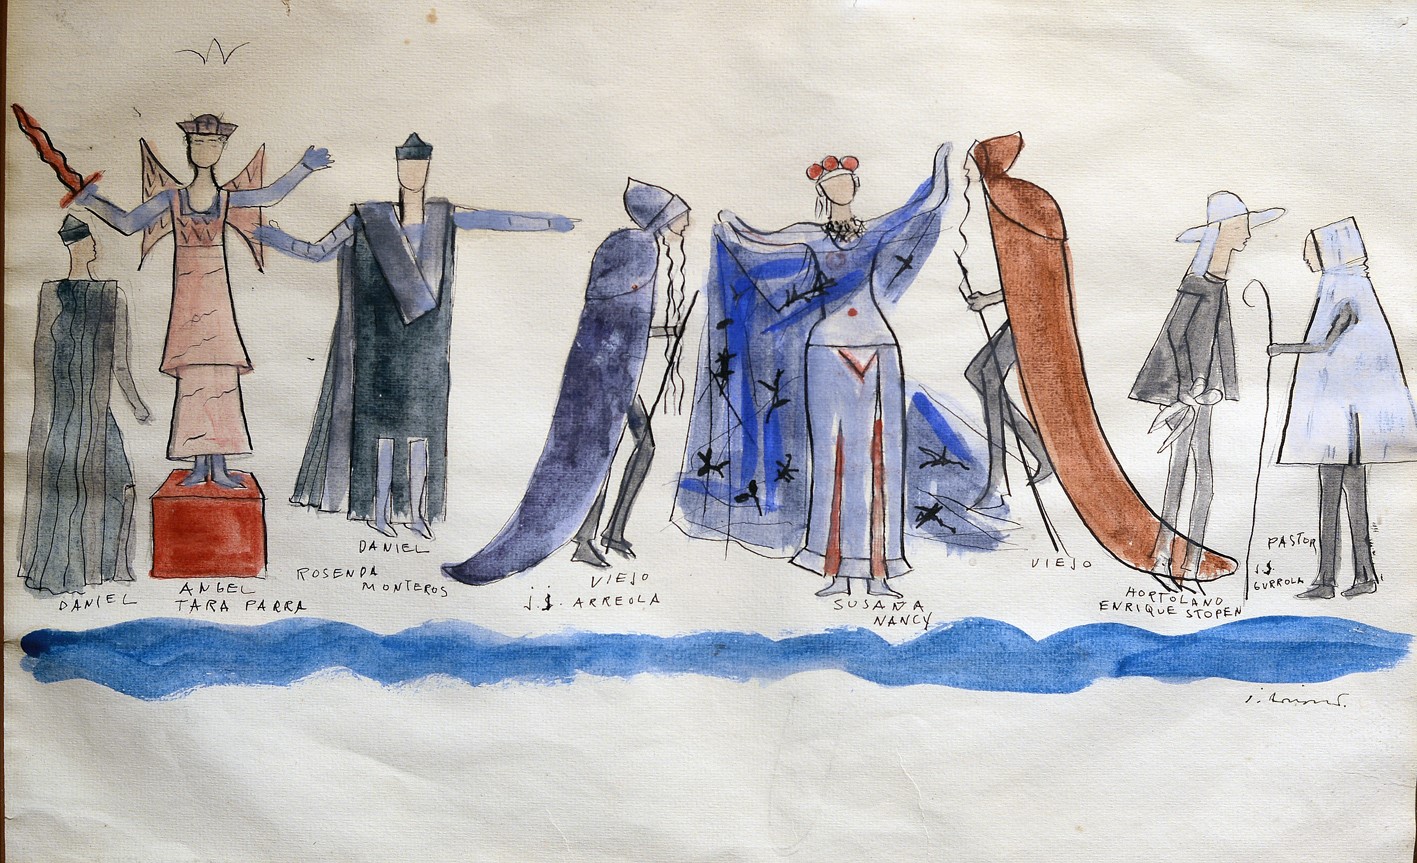 DANIEL
ANGEL
TARA PARRA
ROSENDA
MONTEROS
DANIEL
VIEJO
J.J. ARREOLA
SUSANA
NANCY
VIEJO
HORTOLANO
ENRIQUE STOPEN
PASTOR
J.J.
GURROLA